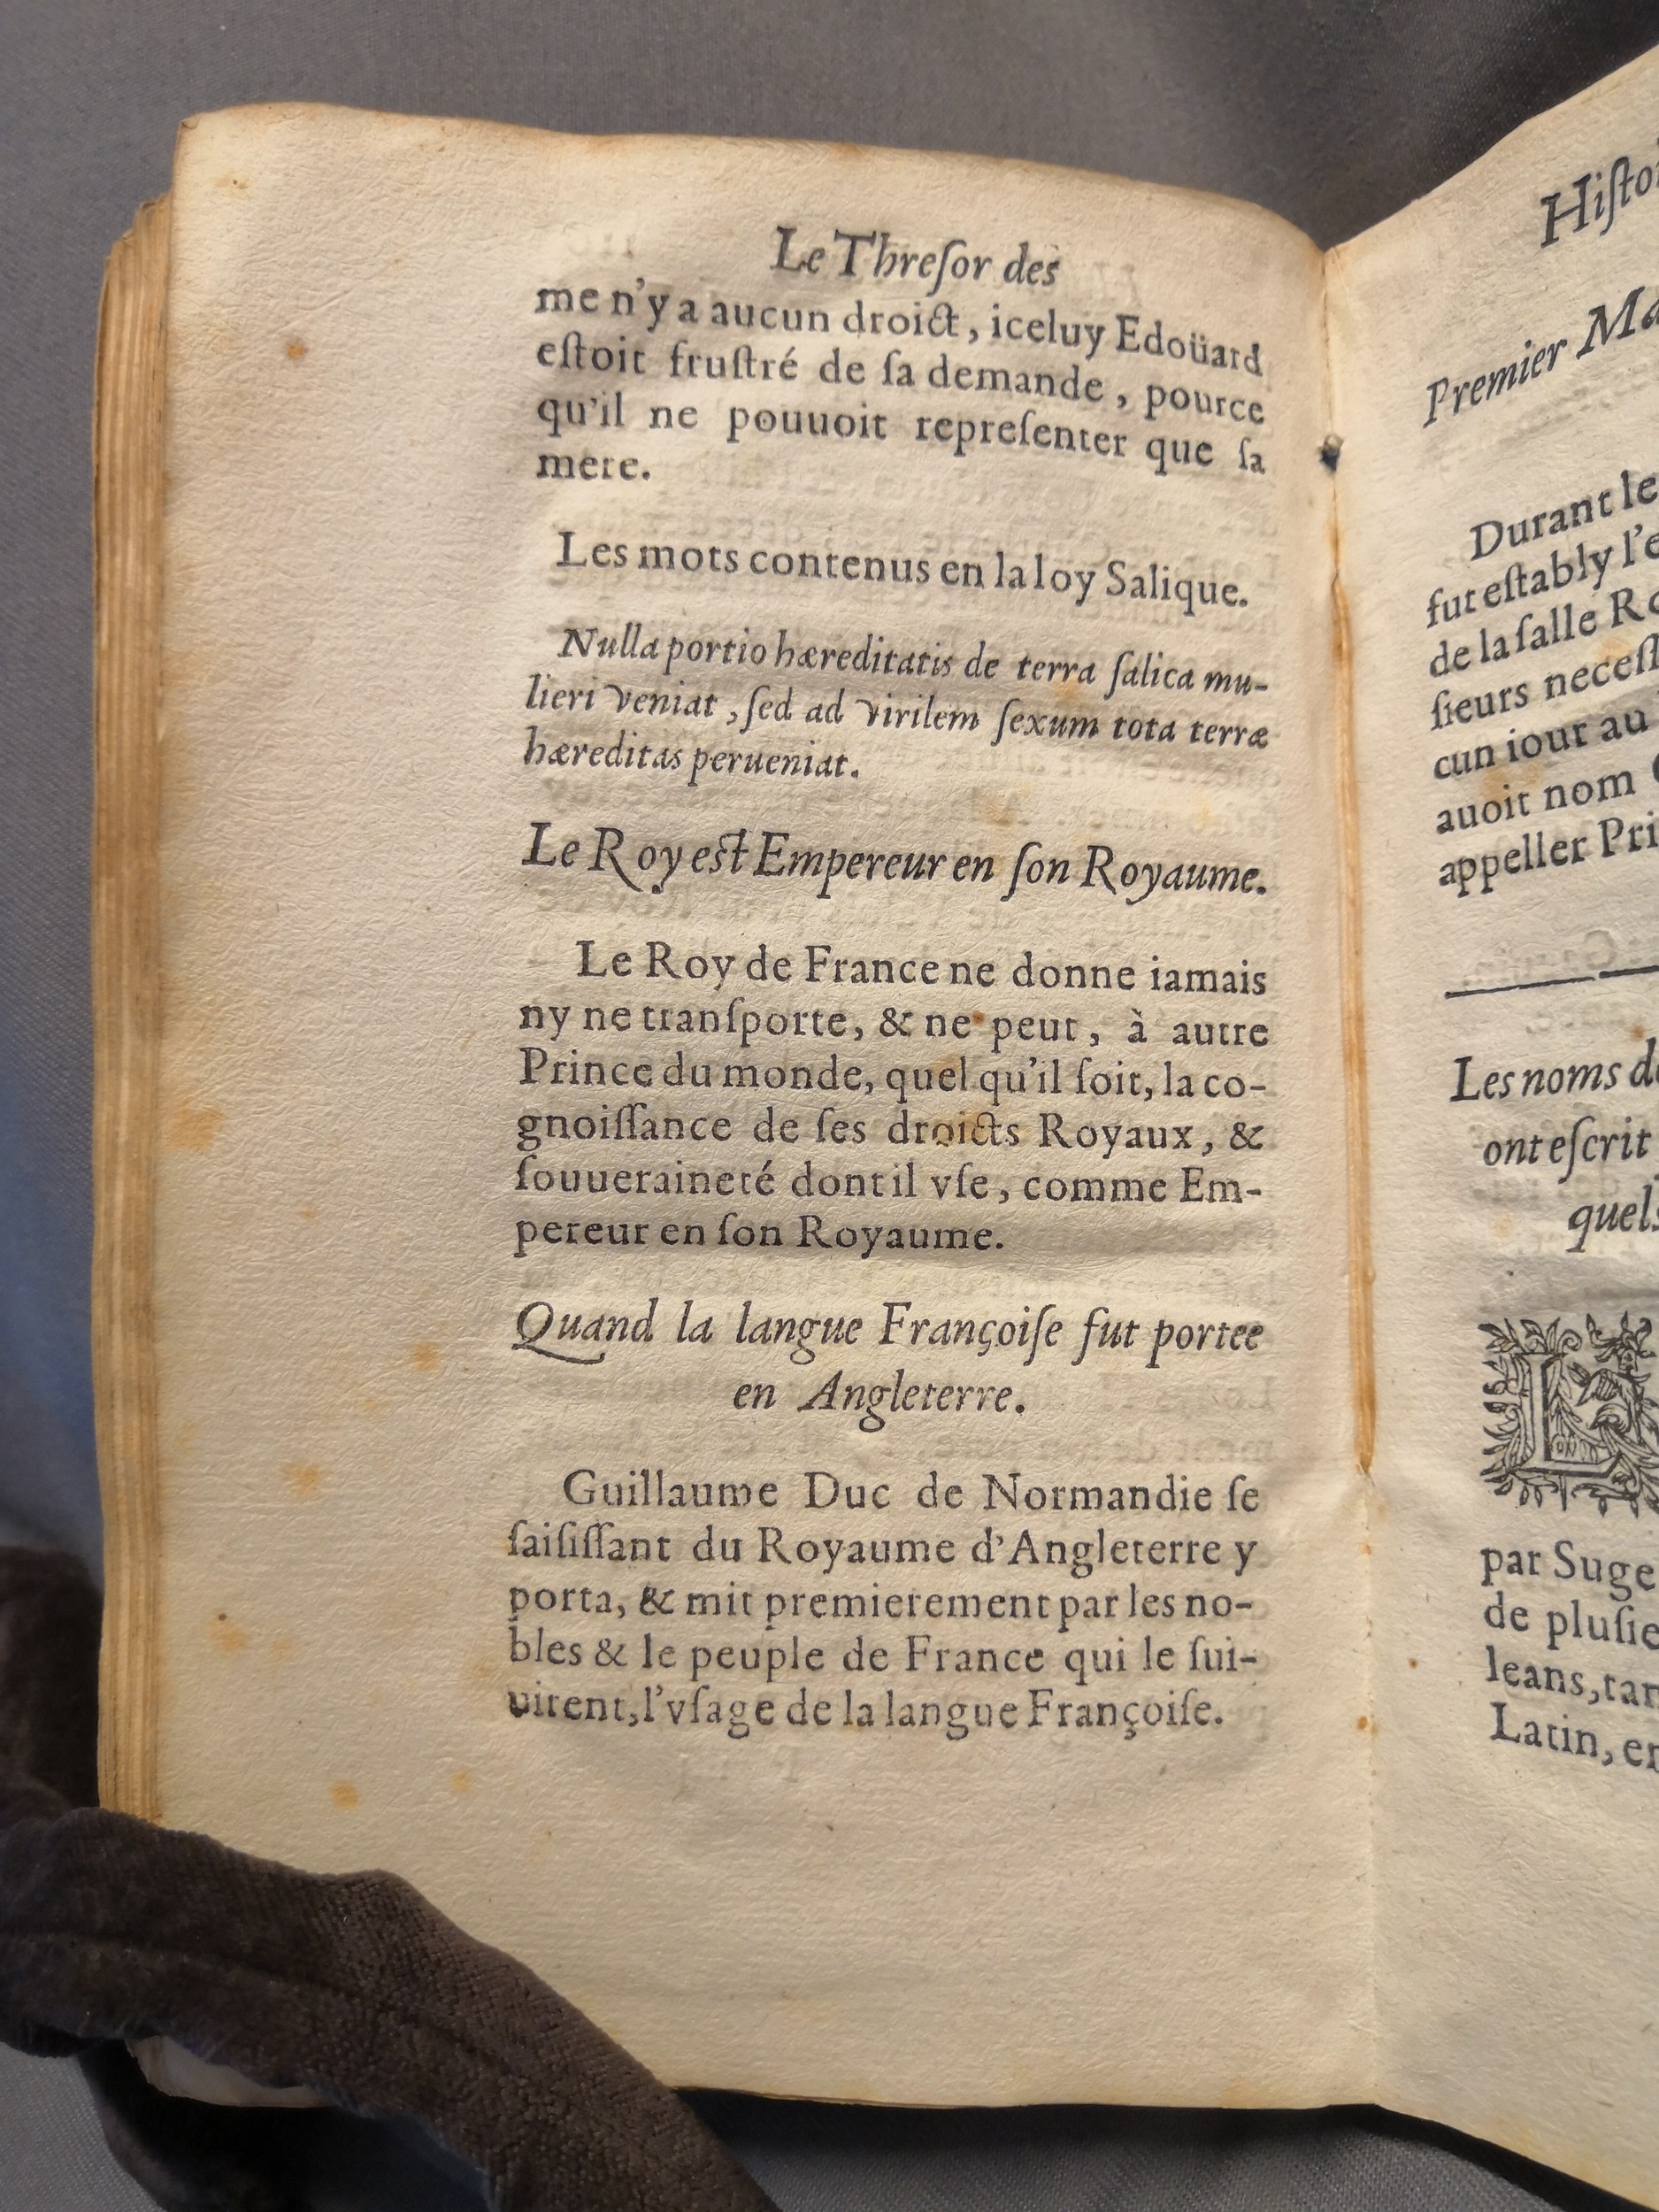 Le Threſor des
me n'y a aucun droict, iceluy Edoüard
eſtoit fruſtré de ſa demande, pource
qu'il ne pouuoit repreſenter que ſa
mere.
Les mots contenus en la loy Salique.
Nulla portio hæreditatis de terra ſalica mu-
lieri veniat, ſed ad virilem ſexum tota terræ
hæreditas perueniat.
Le Roy est Empereur en ſon Royaume.
Le Roy de France ne donne iamais
ny ne tranſporte, & ne peut, à autre
Prince du monde, quel qu'il ſoit, la co-
gnoiſſance de ſes droicts Royaux, &
ſouueraineté dont il vſe, comme Em-
pereur en ſon Royaume.
Quand la langue Françoiſe fut portee
en Angleterre.
Guillaume Duc de Normandie ſe
ſaiſiſſant du Royaume d'Angleterre y
porta, & mit premierement par les no-
bles & le peuple de France qui le ſui-
uirent, l'vſage de la langue Françoiſe.
Premier
Durant
fut eſtably
de la ſalle
ſieurs
cun iour au
auoit nom
appeller
Les noms
ont eſcrit
L
par
de
Latin,